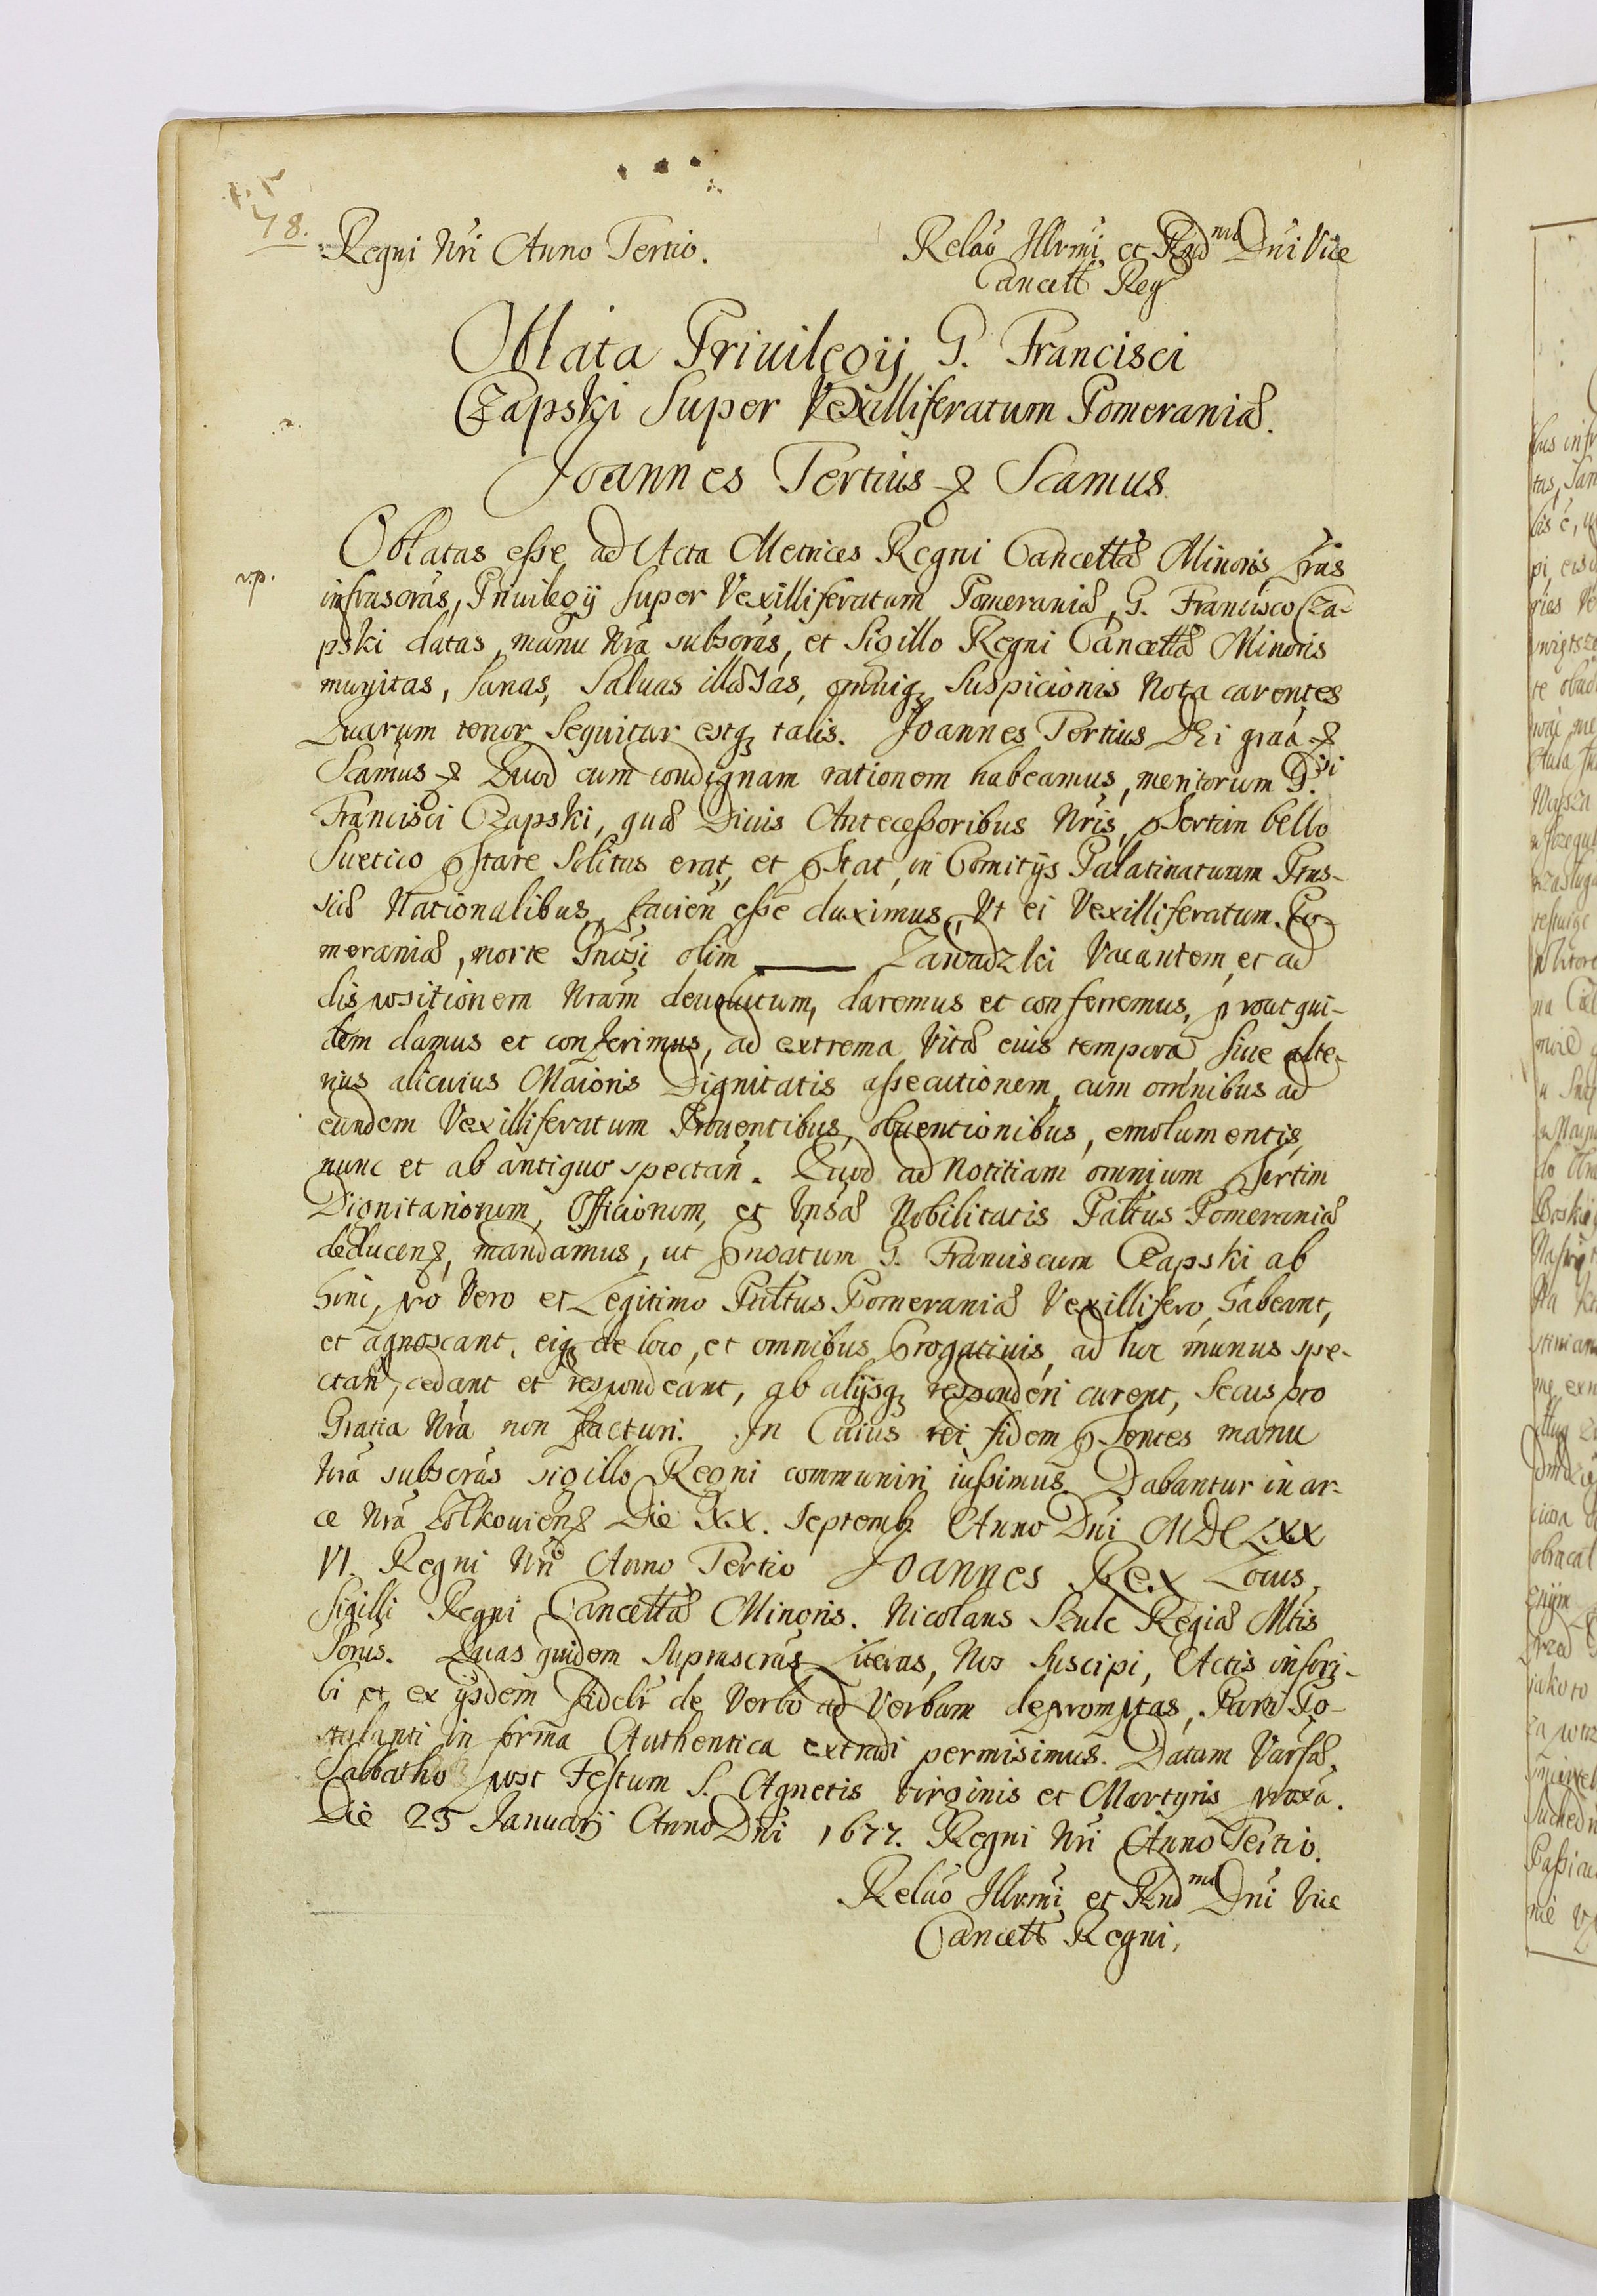 78.
Regni Nri Anno Tertio.
Relão Illrmi et Rnd mi Dni Vice
Cancell Reg
Oblata Priuilegij G. Francisci
Czapski Super Vexilliferatum Pomeraniæ.
Joannes Tertius & Scamus.
Oblatas esse ad Acta Metrices Regni Cancellæ Minoris Lras
infrascras, Priuilegij super Vexilliferatum Pomeraniæ, G. Francisco Cza-
pski datas, manu Nra subscras, et Sigillo Regni Cancellæ Minoris
munitas, Sanas, Saluas illæsas, omniq₃ Suspicionis Nota carentes
Quarum tenor Sequitur estq₃ talis. Joannes Tertius DEi graã &
Scamus & Quod cum condignam rationem habeamus, meritorum G.
Francisci Czapski, quæ Diuis Antecessoribus Nris, pSertim bello
Suetico pStare Solitus erat, et pStat, in Comitijs Palatinatuum Prus-
siæ Nationalibus, facien esse duximus, Vt ei Vexilliferatum Po-
meraniæ, morte Gnosi olim ——— Zawadzki Vacantem, et ad
dispositionem Nram deuolutum, daremus et conferremus, prout qui-
dem damus et conferimus, ad extrema Vitæ eius tempora siue alte-
rius alicuius Maioris Dignitatis assecutionem, cum omnibus ad
eundem Vexilliferatum Prouentibus, obuentionibus, emolumentis,
nunc et ab antiquo spectan. Quod ad Notitiam omnium pSertim
Dignitariorum, Officiorum, et Vnsæ Nobilitatis Paltus Pomeraniæ
deducen₃, mandamus, ut pnoatum G. Franciscum Czapski ab
hinc, pro Vero et Legitimo Paltus Pomeraniæ Vexillifero, habeant,
et agnoscant, eiq₃ de loco, et omnibus progatiuis, ad hoc munus spe-
ctan, cedant et respondeant, ab alijsq₃ responderi curent, Secus pro
Gratia Nra non facturi. In Cuius rei fidem pSentes manu
Nra subscras sigillo Regni communiri iussimus. Dabantur in ar-
ce Nra Zolkouien₃ Die XX. Septemb Anno Dni MDCLXX
VI. Regni Nri Anno Tertio Joannes Rex Locus,
Sigilli Regni Cancellæ Minoris. Nicolaus Szulc Regiæ Mtis
Srius. Quas quidem Suprascras Literas, Nos Suscipi, Actis inscri-
bi et ex ijsdem fideli de Verbo ad Verbum depromptas, Parti Po-
stulanti in forma Authentica extradi permisimus. Datum Varsæ,
Sabbatho post Festum S. Agnetis Virginis et Martyris proxa.
Die 23 Januarij Anno Dni 1677. Regni Nri Anno Tertio.
Relão Illrmi et Rnd mi Dni Vice
Cancell Regni,